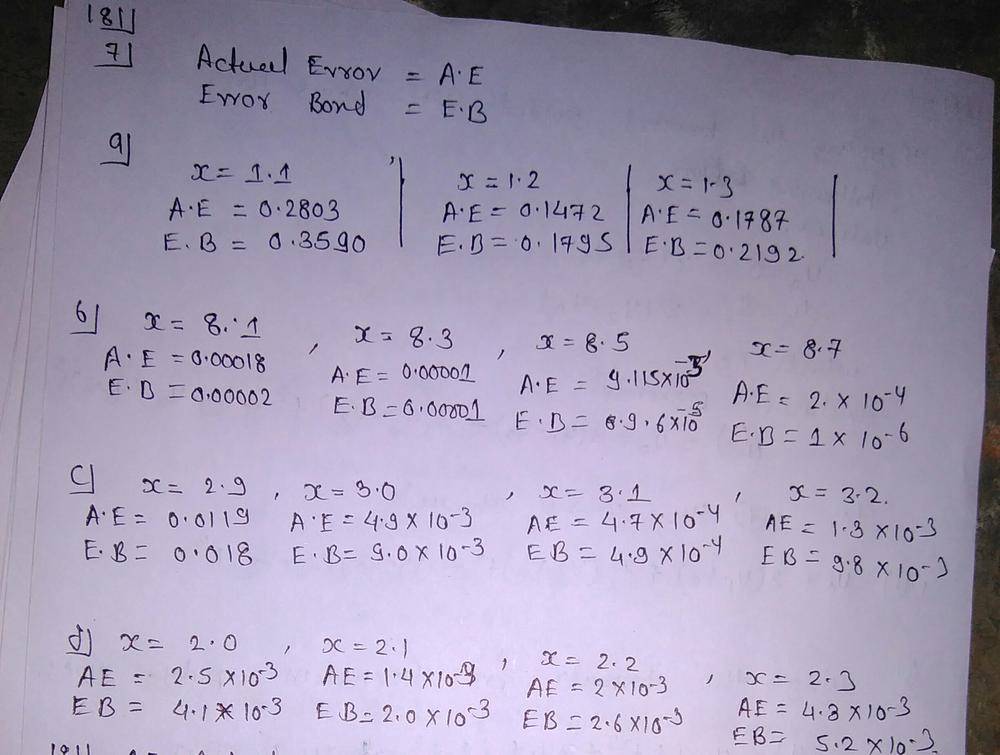 181]
7]
Actual Error = A.E
Error Bond = E.B
a]
x = 1.1
A.E = 0.2803
E.B = 0.3590
x = 1.2
A.E = 0.1472
E.B = 0.1795
x = 1.3
A.E = 0.1787
E.B = 0.2192
b]
x = 8.1
A.E = 0.00018
E.B = 0.00002
, x = 8.3
A.E = 0.00001
E.B = 0.00001
, x = 8.5
A.E = 9.115×10
E.B = 9.6×10⁻⁵
x = 8.7
A.E = 2.×10⁻⁴
E.B = 1×10⁻⁶
c]
x = 2.9
A.E = 0.0119
E.B = 0.018
, x = 3.0
A.E = 4.9×10⁻³
E.B = 9.0×10⁻³
, x = 3.1
AE = 4.7×10⁻⁴
EB = 4.9×10⁻⁴
, x = 3.2.
AE = 1.3×10⁻³
EB = 9.8×10⁻³
d]
x = 2.0
AE = 2.5×10⁻³
EB = 4.1×10⁻³
, x = 2.1
AE = 1.4×10
E.B = 2.0×10⁻³
, x = 2.2
AE = 2×10⁻³
EB = 2.6×10⁻³
, x = 2.3
AE = 4.3×10⁻³
EB = 5.2×10⁻³